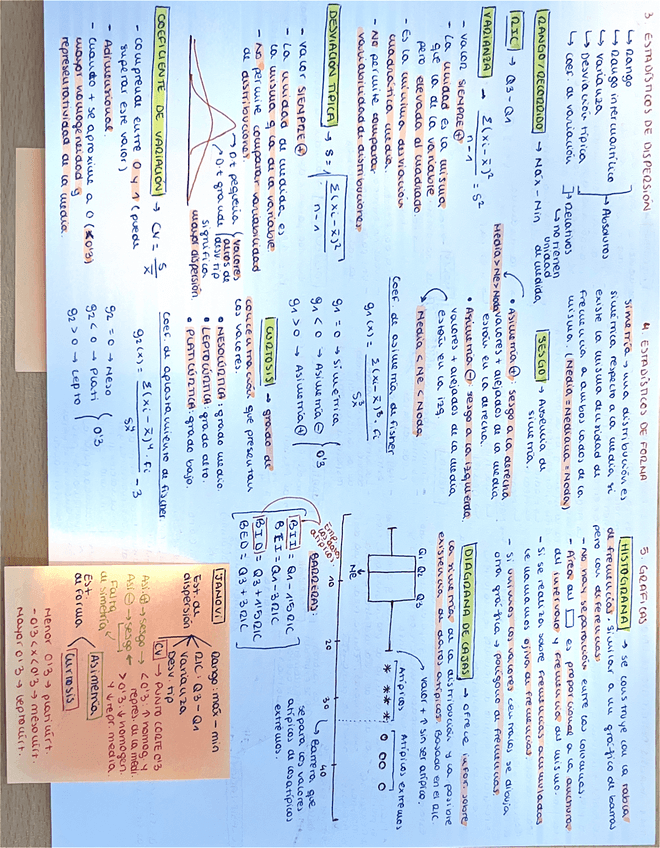 3 ESTADÍSTICOS DE DISPERSIÓN
↳ Rango
↳ Rango intercuartílico
↳ Varianza
↳ Desviación típica
→ Absolutos
↳ Coef. de variación
→ Relativos
↳ no tienen unidad de medida
RANGO/RECORRIDO → Máx - Min
RIC → Q3 - Q1
VARIANZA → Σ(xi - x̄)² / n-1 = S²
- valor SIEMPRE ⊕
- La unidad es la misma
que la de la variable
pero elevada al cuadrado.
- Es la mínima desviación
cuadrática media.
- No permite comparar
variabilidad de distribuciones.
DESVIACIÓN TÍPICA → S = √ Σ(xi - x̄)² / n-1
- valor SIEMPRE ⊕
- La unidad de medida es
la misma q la de la variable.
- No permite comparar variabilidad
de distribuciones.
D.t pequeña
D.t grande
(valores altos de desv tip
significa
mayor dispersión.
COEFICIENTE DE VARIACIÓN → CV = S / x̄
- comprende entre 0 y 1 (puede
superar este valor)
- Adimensional
- cuanto + se aproxime a 0 (<0'3)
mayor homogeneidad y
representatividad de la media.
4 ESTADÍSTICOS DE FORMA
Simetría → una distribución es
simétrica respecto a la media si
existe la misma cantidad de
frecuencia a ambos lados de la
misma. (Media = Mediana = Moda)
SESGO → Ausencia de
simetría.
• Asimetría ⊕: sesgo a la derecha
Media > Me > Moda
valores + alejados de la media
están en la derecha.
• Asimetría ⊖: sesgo a la izquierda
valores + alejados de la media
están en la izq.
Media < Me < Moda
Coef. de asimetría de fisher
g1(x) = Σ(xi - x̄)³ · fi / Sx³
g1 = 0 → simétrica
g1 < 0 → Asimetría ⊖
g1 > 0 → Asimetría ⊕
0'3
CURTOSIS → grado de
concentración que presentan
los valores.
• MESOCÚRTICA: grado medio.
• LEPTOCÚRTICA: grado alto.
• PLATICÚRTICA: grado bajo.
Coef. de aplastamiento de fischer
g2(x) = Σ(xi - x̄)⁴ · fi / Sx⁴ - 3
g2 = 0 → Meso
g2 < 0 → Plati
g2 > 0 → Lepto
0'3
5. GRÁFICAS
HISTOGRAMA → se construye con la tabla
de frecuencias. Similar a un gráfico de barras
pero con diferencias:
- No hay separación entre las columnas.
- Área del ▭ es proporcional a la anchura
del intervalo y frecuencia del mismo.
- Si se realiza sobre frecuencias acumuladas
se llama ojiva de frecuencias.
- Si unimos los valores centrales se dibuja
otra gráfica → polígono de frecuencias
DIAGRAMA DE CAJAS → ofrece infor. sobre
la simetría de la distribución y la posible
existencia de datos atípicos. Basado en el RIC
valor + ↑ sin ser atípico.
Q1 Q2 Q3
Me
Atípicos
* * * *
Atípicos extremos
o oo o
10 20 30 40
↳ Barrera que
separa los valores
atípicos de los atípicos
extremos.
BARRERAS:
BII = Q1 - 1'5 RIC
BEI = Q1 - 3 RIC
BID = Q3 + 1'5 RIC
BED = Q3 + 3 RIC
¡ANOVI!
Est. de
dispersión
Rango: máx - min
RIC: Q3 - Q1
Varianza
Desv. tip
CV → PUNTO CORTE 0'3
< 0'3: ↑ homog. y
repres. de la media.
> 0'3: ↓ homogen.
y ↓ repr. media.
Asi ⊕ → sesgo →
Asi ⊖ → sesgo ←
Falta
de simetría
Est.
de forma
Asimetría
Curtosis
Menor 0'3 → platicúrt.
-0'3 < x < 0'3 → mesocúrt.
Mayor 0'3 → leptocúrt.